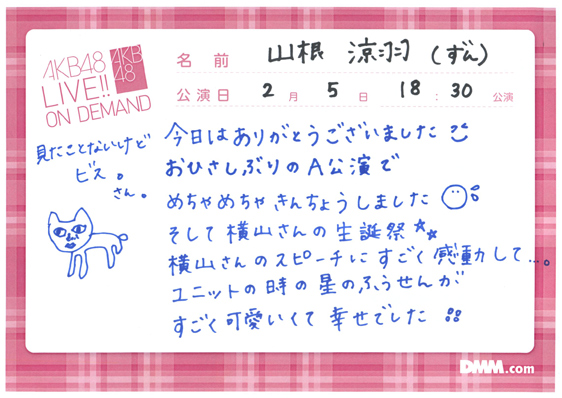 AKB48
LIVE!!
ON DEMAND
AKB
48
名前 山根 涼羽 (ずん)
公演日 2月 5日 18:30 公演
見たことないけど
ビス。
さん。
今日はありがとうございました
おひさしぶりのA公演で
めちゃめちゃきんちょうしました
そして横山さんの生誕祭
横山さんのスピーチにすごく感動して...。
ユニットの時の星のふうせんが
すごく可愛いくて幸せでした
DMM.com